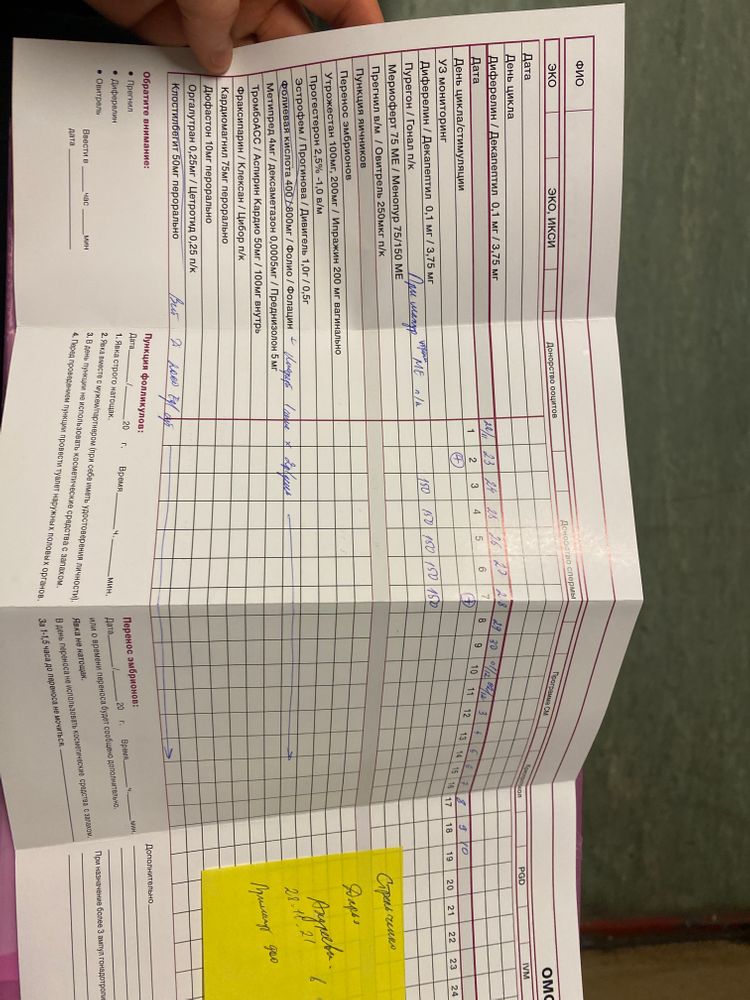 ОМС
ФИО
ЭКО ЭКО, ИКСИ Донорство ооцитов Донорство спермы Программа СМ PGD IVM
Дата
День цикла
Диферелин / Декапептил 0,1 мг / 3,75 мг
Дата 22/11 23 24 25 26 27 28 29 30 01/12 02/12 3 4 5 6 7 8 9 10
День цикла/стимуляции 1 2 3 4 5 6 7 8 9 10 11 12 13 14 15 16 17 18 19 20 21 22 23 24
УЗ мониторинг + +
Диферелин / Декапептил 0,1 мг / 3,75 мг
Пурегон / Гонал п/к МЕ п/к 150 150 150 150 150
Мериоферт 75 МЕ / Менопур 75/150 МЕ
Прегнил в/м / Овитрель 250мкг п/к
Пункция яичников
Перенос эмбрионов
Утрожестан 100мг, 200мг / Ипражин 200 мг вагинально
Прогестерон 2,5% -1,0 в/м
Эстрофем / Прогинова / Дивигель 1,0г / 0,5г
Фолиевая кислота 400 / 800мг / Фолио / Фолацин
Метипред 4мг / дексаметазон 0,0005мг / Преднизолон 5 мг
ТромбоАСС / Аспирин Кардио 50мг / 100мг внутрь
Фраксипарин / Клексан / Цибор п/к
Кардиомагнил 75мг перорально
Дюфастон 10мг перорально
Оргалутран 0,25мг / Цетротид 0,25 п/к
Клостилбегит 50мг перорально Вит Д 2000
Обратите внимание:
• Прегнил
• Диферелин
• Овитрель
Ввести в ____ час ____ мин
дата ____
Пункция фолликулов:
Дата ____/____ 20 г. Время ____ ч. ____ мин.
1. Явка строго натощак.
2. Явка вместе с мужем/партнером (при себе иметь удостоверения личности).
3. В день пункции не использовать косметические средства с запахом.
4. Перед проведением пункции провести туалет наружных половых органов.
Перенос эмбрионов:
Дата ____/____ 20 г. Время ____ ч. ____ мин.
или о времени переноса будет сообщено дополнительно.
Явка не натощак.
В день переноса не использовать косметические средства с запахом.
За 1-1,5 часа до переноса не мочиться.
Дополнительно
При назначение более 3 ампул
Дарья
Андреевна